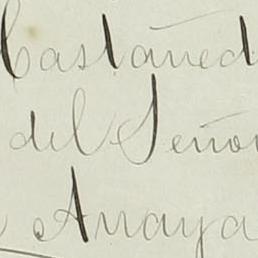 Castañed
del Señor
Anaya